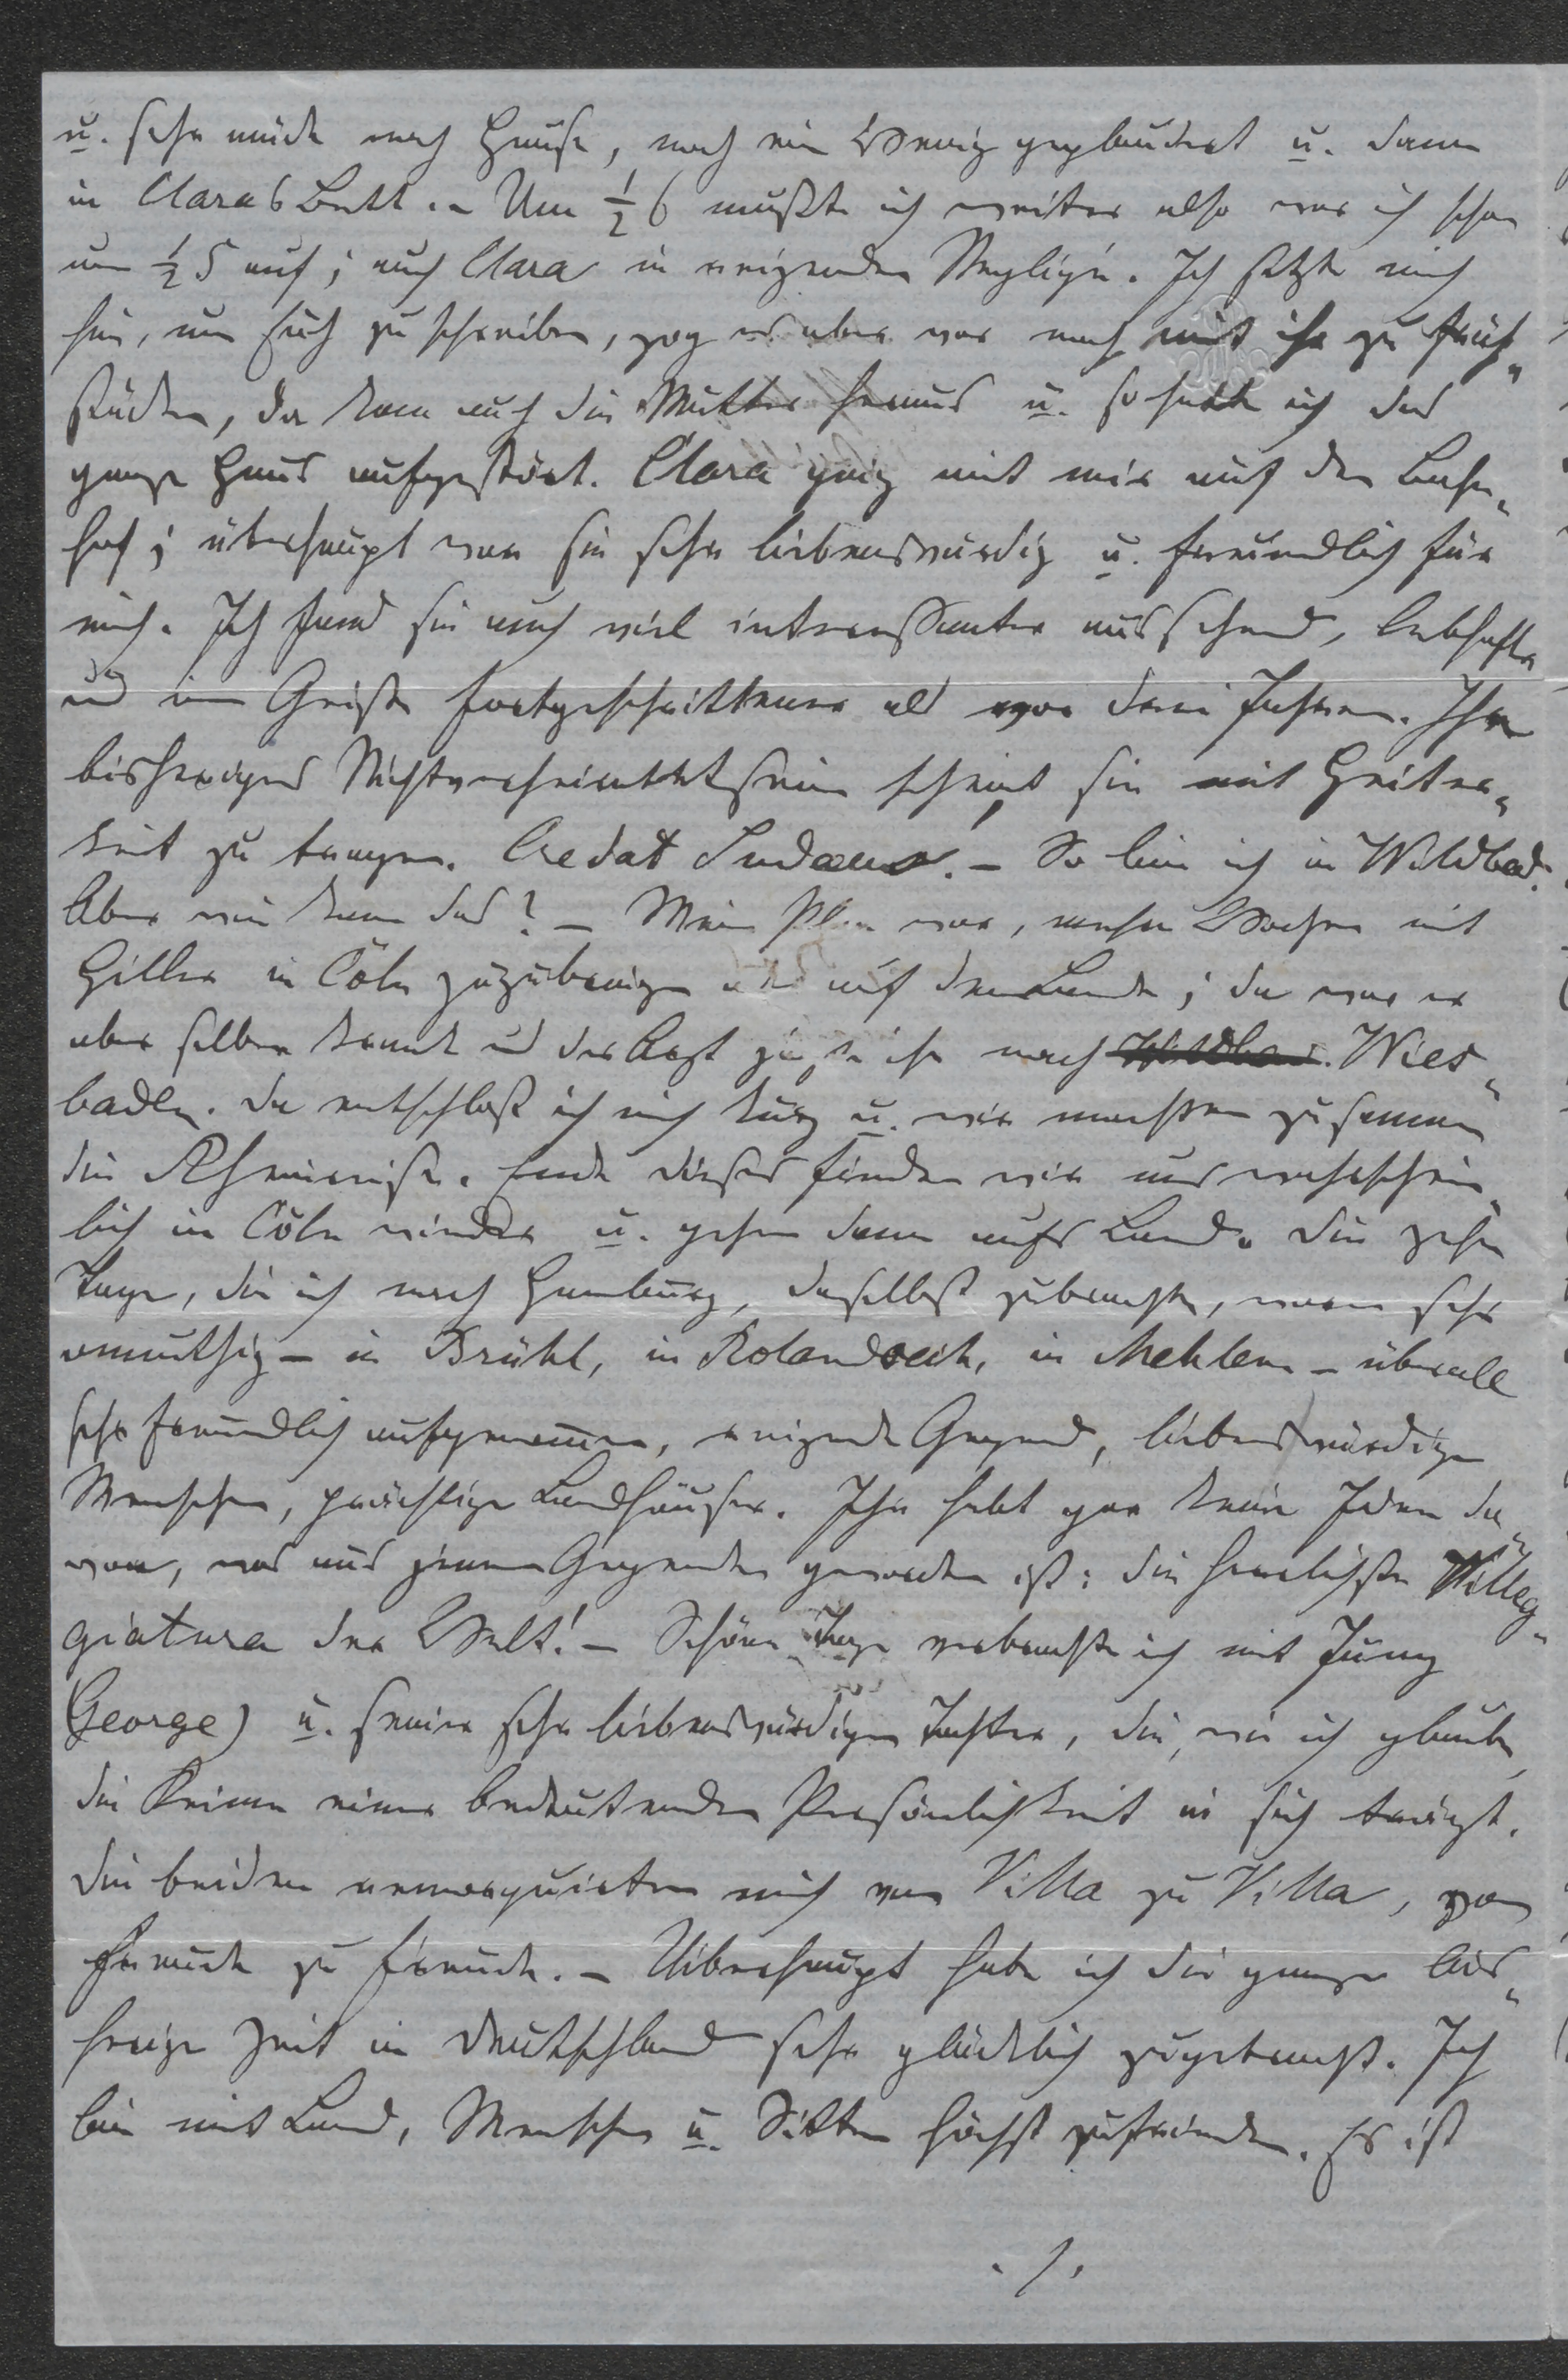 u. sehr müde nach Hause, noch ein Wenig geplaudert u. dann
in Claras Bett. – Um ½ 6 mußte ich weiter also war ich schon
um ½ 5 auf; auch Clara in reizendem Negligé. Ich setzte mich
hin, um Euch zu schreiben, zog es aber vor noch mit ihr zu früh„
stücken, da kam auch die Mutter heraus u. so hatte ich das
ganze Haus aufgestört. Clara ging mit mir auf den Bahn„
hof; überhaupt war sie sehr liebenswürdig u. freundlich für
mich. Ich fand sie auch viel interessanter aussehend, lebhafter
und im Geiste fortgeschrittener als vor drei Jahren. Ihr
bisheriges Nichtverheirathetsein scheint sie mit Heiter„
keit zu tragen. Credat Judaeus. – So bin ich in Wildbad.
Aber wie kam das? – Mein Plan war, mehre Wochen mit
Hiller in Cöln zuzubringen und auf dem Lande; da war er
aber selber krank und der Arzt jagte ihn nach Wildbad. Wies„
baden. Da entschloß ich mich kurz u. wir machten zusammen
die Rheinreise. Ende dieses finden wir uns wahrschein„
lich in Cöln wieder u. gehen dann aufs Land. Die zehn
Tage, die ich nach Hamburg, daselbst zubrachte, waren sehr
anmuthig – in Brühl, in Rolandseck, in Mehlem – überall
sehr freundlich aufgenommen, reizende Gegend, liebenswürdige
Menschen, prächtige Landhäuser. Ihr habt gar keine Idee da„
von, was aus jenen Gegenden geworden ist: die herrlichste Villeg„
giatura der Welt! – Schöne Tage verbrachte ich mit Jung
(George) u. seiner sehr liebenswürdigen Tochter, die, wie ich glaube,
die Keime einer bedeutenden Persönlichkeit in sich trägt.
Die beiden remorquirten mich von Villa zu Villa, von
Freude zu Freude. – Uiberhaupt habe ich die ganze bis„
herige Zeit in Deutschland sehr glücklich zugebracht. Ich
bin mit Land, Menschen u. Sitten höchst zufrieden. Es ist
./.